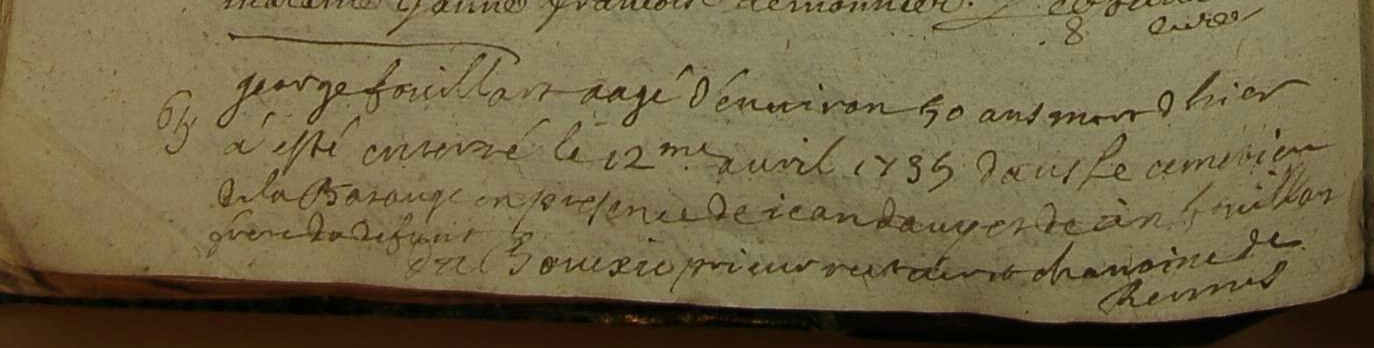 marainne francois demonnier.
8 cure
george fouillart aagé d'enuiron 50 ans mort d hier
65 a esté enterré le 12me auril 1735 dans le cemetiere
de la Basouge en presence de iean dauger de ian fouillar
frere du defunt
prieur recteur chanoine de
Rennes